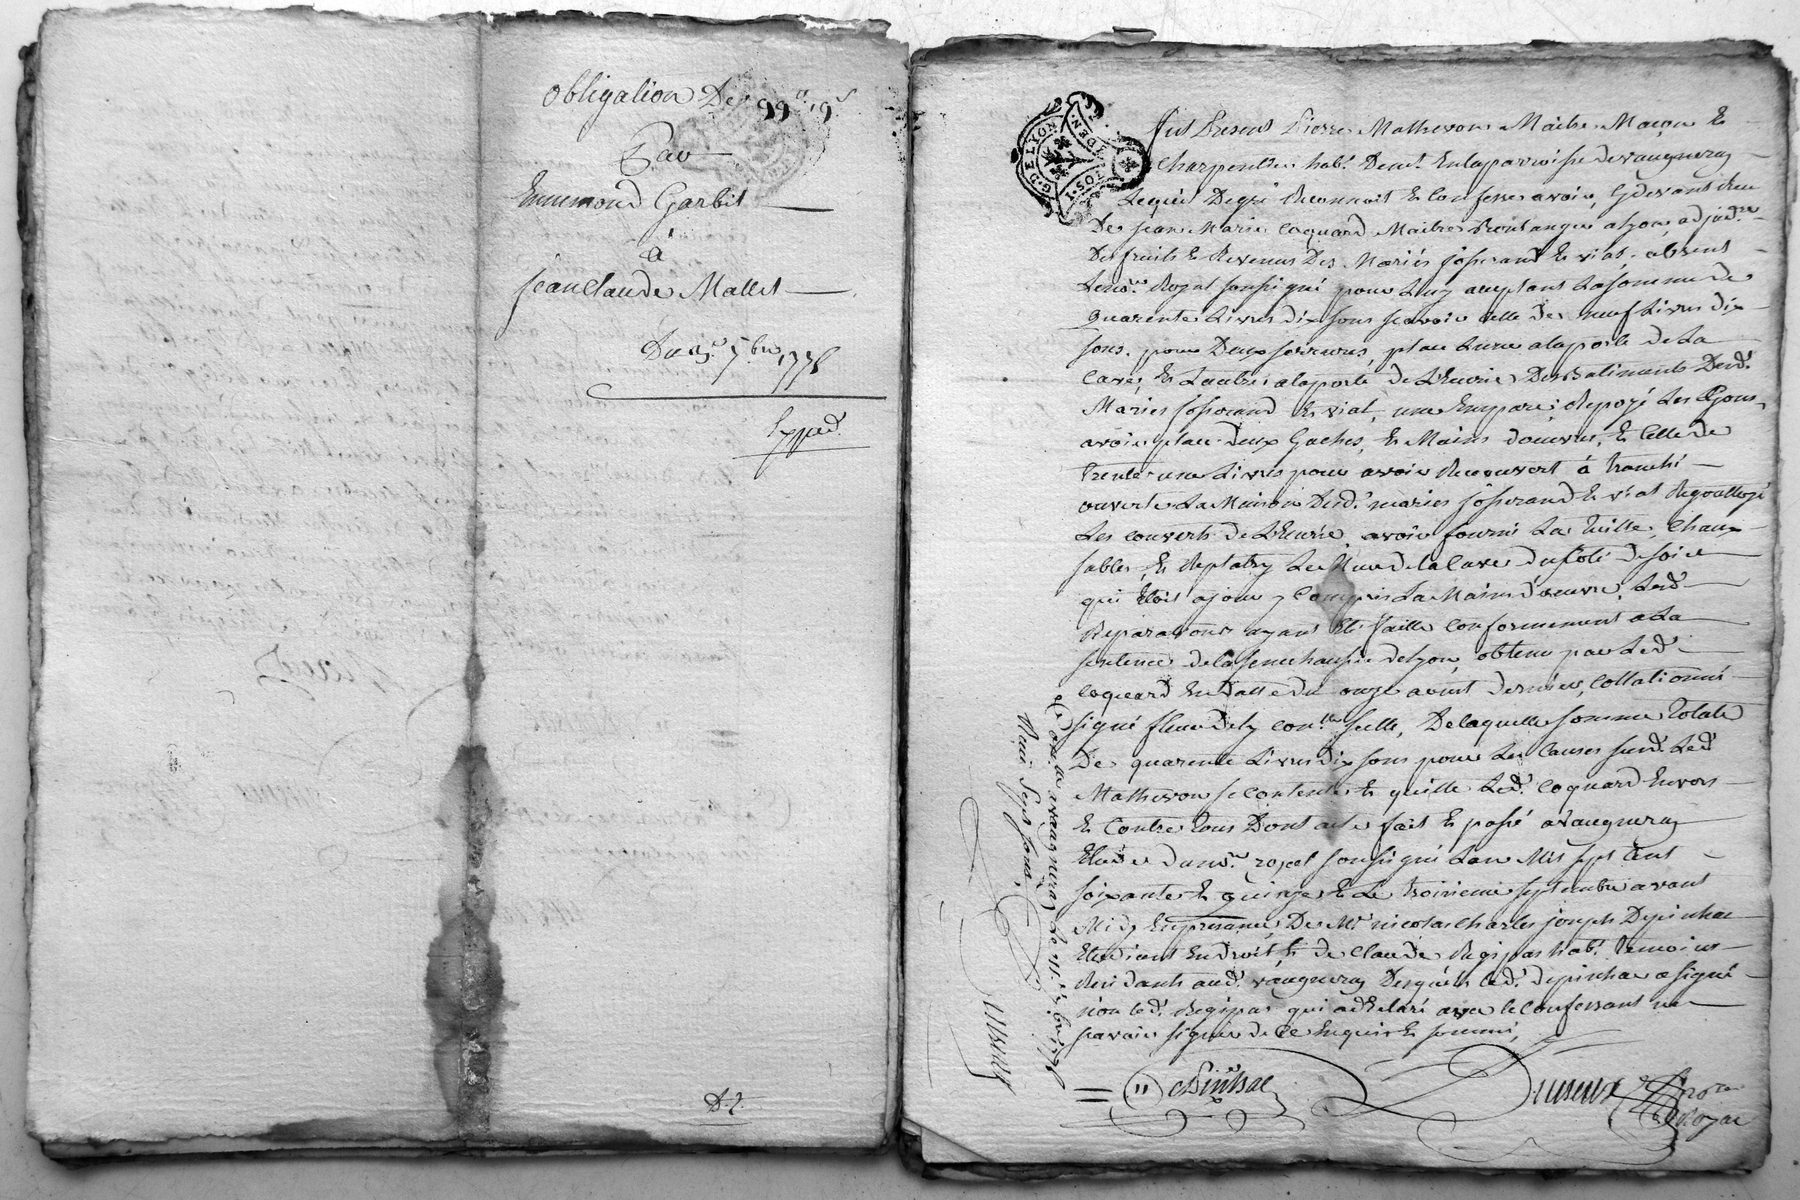 Obligation De 99ᵗᵗ 19ˢ
Par
Ennemond Garbit
à
Jean Claude Mallet
Du 3ᵉ 7bre 1775
Expéd.
G. DE LYON
DEN.
Fut Present Pierre Matheron Maitre Maçon Et
Charpentier habt. Demt. En la parroisse de vaugneray
Lequel De gré Reconnoit Et Confesse avoir Cy devant Reçu
De Jean Marie Coquard Maitre Boulanger a lyon, adjudre.
Des fruits Et Revenus Des Mariés Josserand Et viat, absent
Le nore. Royal soussigné pour Luy acceptant La somme de
Quarente Livres Dix sous scavoir celle De neuf Livres dix
sous, pour Deux serrures, plau Lune a la porte De La
Cave, Et Lautre a la porte De L'Ecurie Des Batiments Desd.
Mariés Josserand Et viat, une Empare, Repozé Les Gons,
avoir plau deux Gaches, Et Mains d'oeuvres, Et Celle de
trente une Livres pour avoir Recouvert à tranché
ouverte La Maison Desd. mariés Josserand Et viat Regouttoyé
Les couverts De L'Ecurie, avoir fourni La Tuille, Chaux
sable, Et Replatry Le Mur de la Cave du Coté De soir
qui Etoit a jour, y Compris La Mains d'oeuvre, Lesd.
Reparations ayant Eté faitte Conformement a La
sentence de la senechaussée de lyon, obtenu par Led.
Coquard En Datte du onze avout Dernier, Collationné
signé fleurdely con.lle seelle, De laquelle somme Totale
De quarente Livres Dix sous pour Les Causes susd. Led.
Matheron se Contente Et quitte Led. Coquard Envers
Et Contre tous Dont acte fait Et passé a vaugneray
Etude du nore. royal soussigné Lan Mil sept Cent
soixante Et quinze Et Le troisieme septembre avant
Midy En presence De Mr. nicolas Charles joseph Depinhac
Etudiant En droit Et de Claude Regipas habt. temoins
Residants aud. vaugneray Desquels led. depinhac a signé
non led. Regipas qui a declaré avec le Confessant ne
scavoir signer de ce Enquis Et sommé,
Con.lle a vaugneray Le 11e 7bre 1775
Reçu Sept sous,